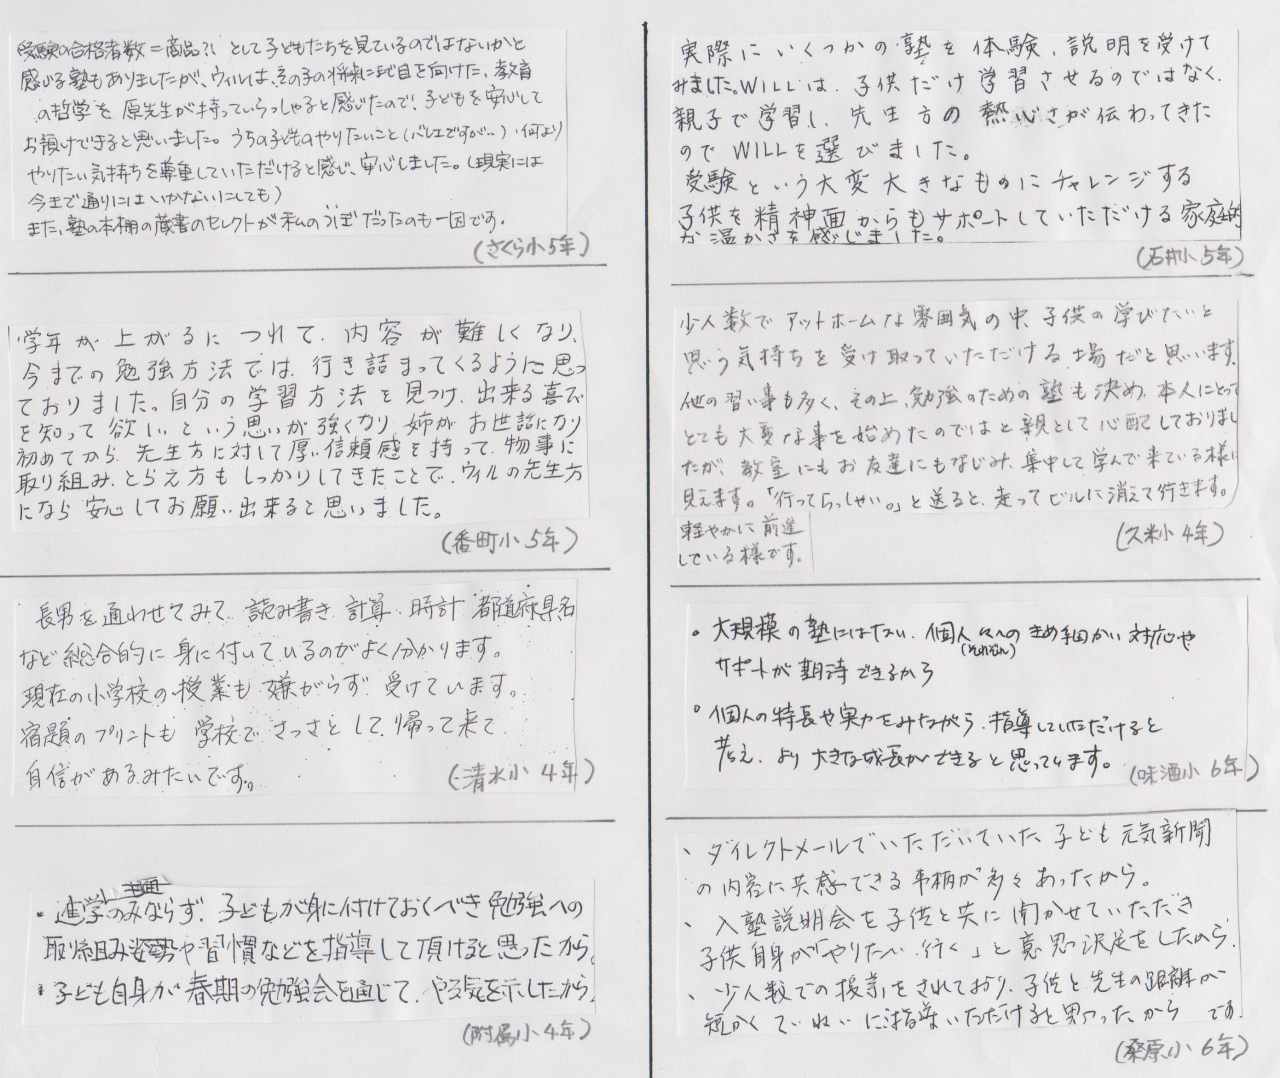 受験の合格者数=商品?! として子どもたちを見ているのではないかと
感じる塾もありましたが、ウィルは、その子の将来にまで目を向けた、教育
の哲学を原先生が持っていらっしゃると感じたので、子どもを安心して
お預けできると思いました。うちの子どものやりたいこと(バレエですが‥)、何より
やりたい気持ちを尊重していただけると感じ、安心しました。(現実には
今まで通りにはいかないにしても)
また、塾の本棚の蔵書のセレクトが私のつぼだったのも一因です。
(さくら小5年)
学年が上がるにつれて、内容が難しくなり、
今までの勉強方法では、行き詰まってくるように思っ
ておりました。自分の学習方法を見つけ、出来る喜び
を知って欲しいという思いが強くなり、姉がお世話になり
初めてから、先生方に対して厚い信頼感を持って、物事に
取り組み、とらえ方もしっかりしてきたことで、ウィルの先生方
になら安心してお願い出来ると思いました。
(番町小5年)
長男を通わせてみて、読み書き、計算、時計、都道府県名
など総合的に身に付いているのがよく分かります。
現在の小学校の授業も嫌がらず受けています。
宿題のプリントも学校でさっさとして帰って来て
自信があるみたいです。
(清水小4年)
・進学のみならず、子どもが身に付けておくべき勉強への
取り組み姿勢や習慣などを指導して頂けると思ったから。
・子ども自身が春期の勉強会を通じて、やる気を示したから。
(附属小4年)
実際にいくつかの塾を体験、説明を受けて
みました。WILLは、子供だけ学習させるのではなく、
親子で学習し、先生方の熱心さが伝わってきた
のでWILLを選びました。
受験という大変大きなものにチャレンジする
子供を精神面からもサポートしていただける家庭的
な温かさを感じました。
(石井小5年)
少人数でアットホームな雰囲気の中、子供の学びたいと
思う気持ちを受け取っていただける場だと思います。
他の習い事も多く、その上、勉強のための塾も決め、本人にとって
とても大変な事を始めたのではと親として心配しておりまし
たが、教室にもお友達にもなじみ、集中して学んで来ている様に
見えます。「行ってらっしゃい。」と送ると、走ってビルに消えて行きます。
軽やかに前進
している様です。
(久米小4年)
・大規模の塾にはない、個人々への(それぞれ)きめ細かい対応や
サポートが期待できるから
・個人の特長や実力をみながら、指導していただけると
考え、より大きな成長ができると思っています。
(味酒小6年)
、ダイレクトメールでいただいていた子ども元気新聞
の内容に共感できる事柄が多々あったから。
、入塾説明会を子供と共に聞かせていただき
子供自身が「やりたい、行く」と意思決定をしたから。
、少人数での授業をされており、子供と先生の距離が
短かくていねいに指導いただけると思ったから です。
(桑原小6年)